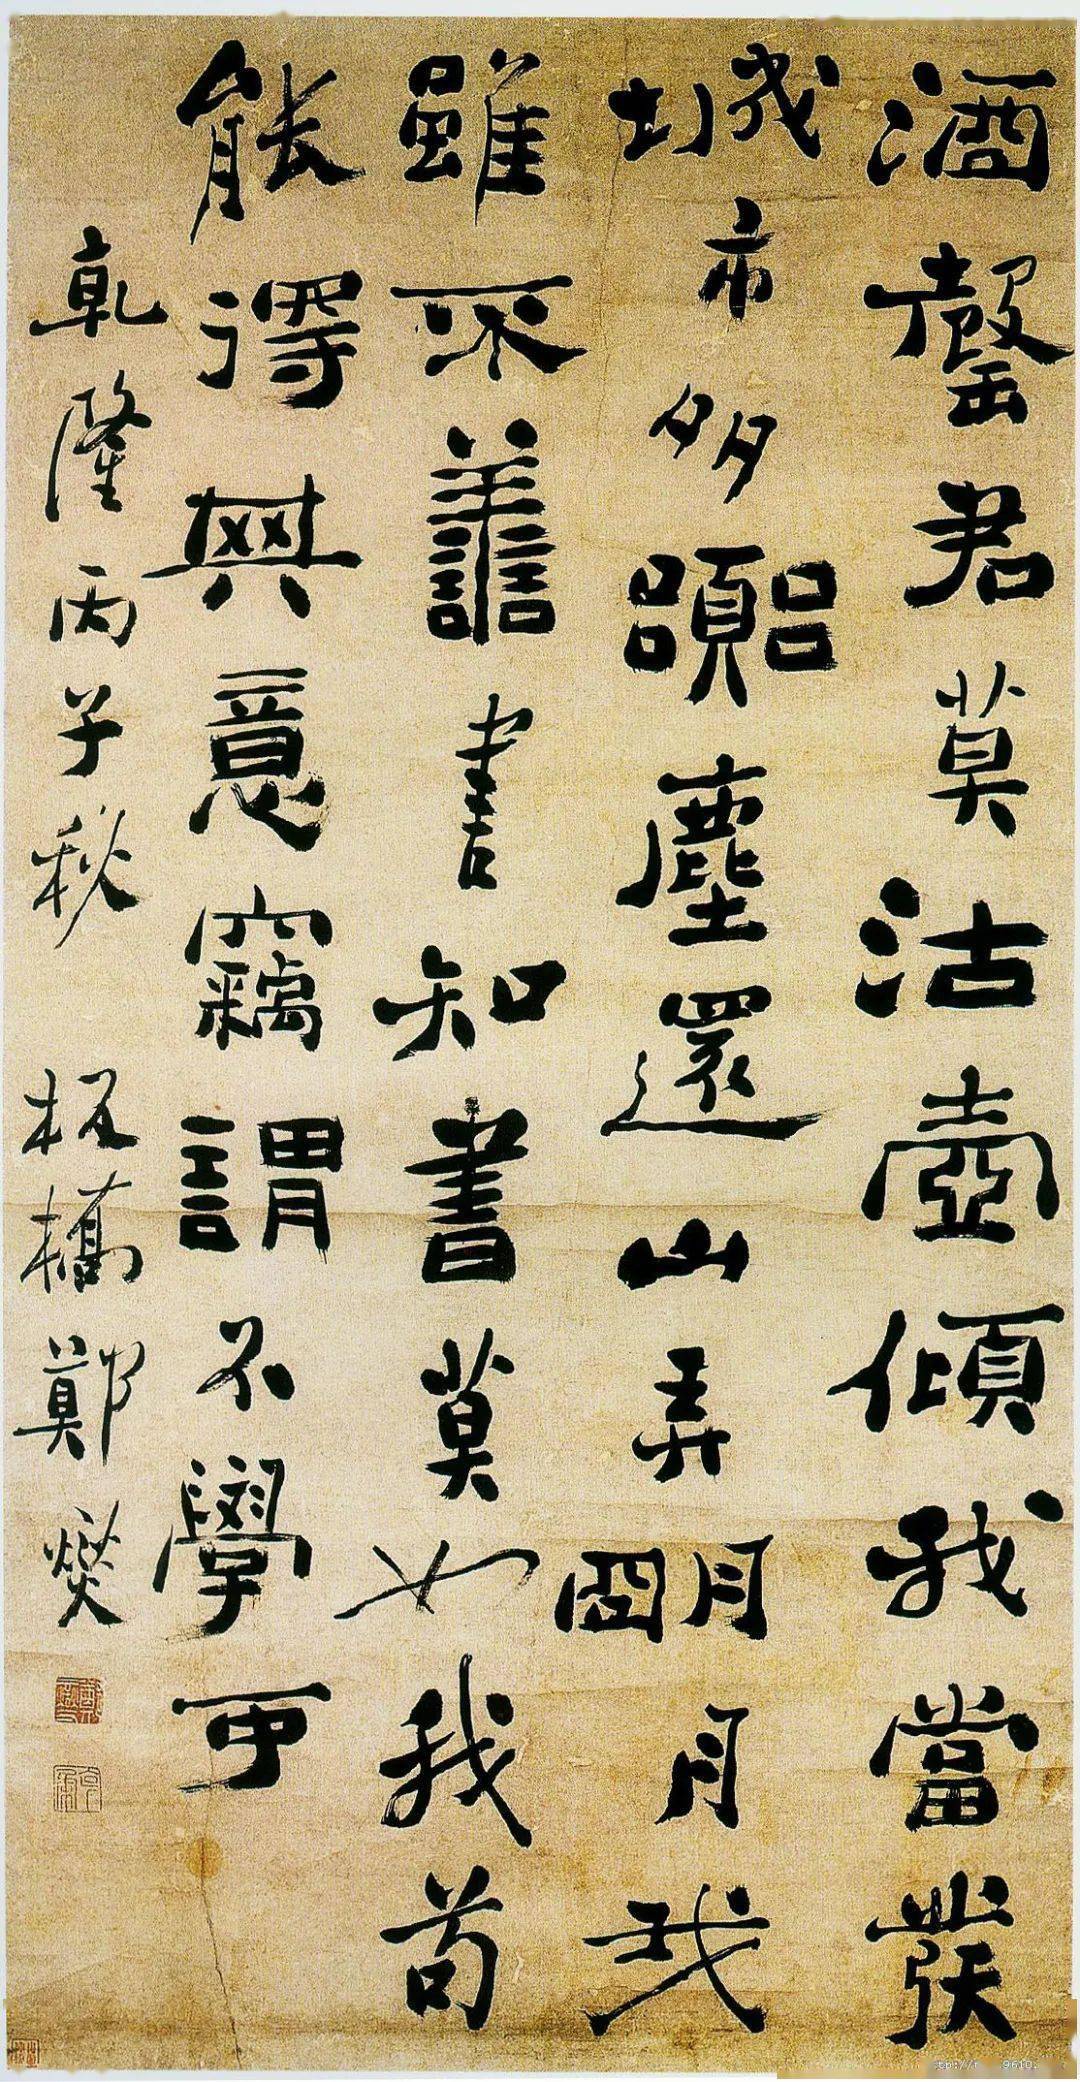 酒罄君莫沽壺傾我當發
城市多嚻塵還山弄明月我
雖不善書知書莫如我苟
能得其意竊謂不學可
乾隆丙子秋 板橋鄭燮